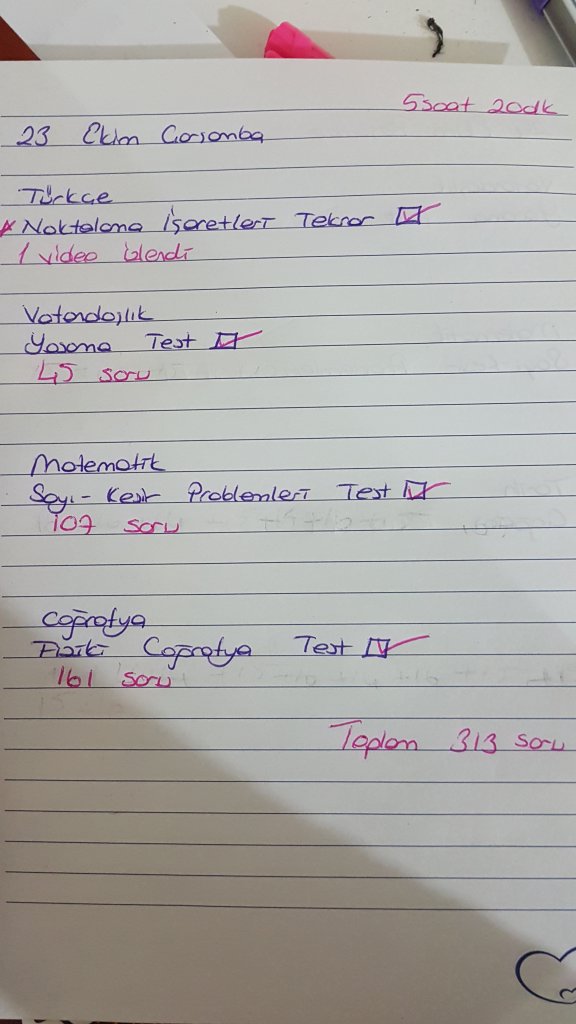 5saat 20dk
23 Ekim Çarşamba
Türkçe
* Noktalama İşaretleri Tekrar
1 video izlendi
Vatandaşlık
Yasama Test
45 soru
Matematik
Sayı-Kesir Problemleri Test
107 soru
Coğrafya
Fiziki Coğrafya Test
161 soru
Toplam 313 soru